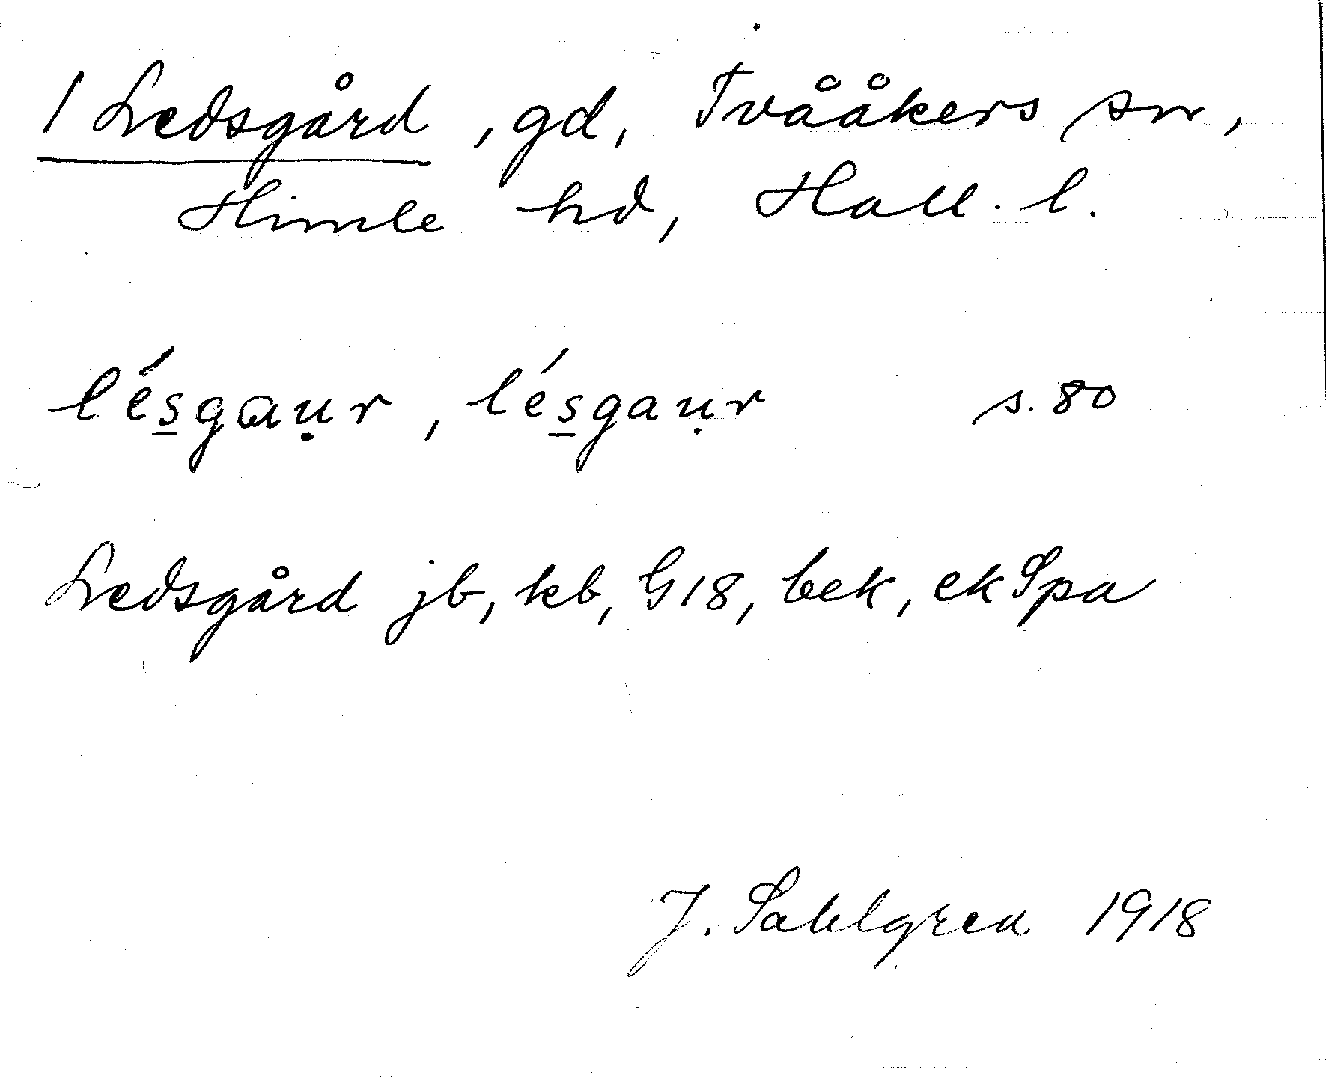 1 Ledsgård, gd, Tvååkers sn,
Himle hd, Hall. l.
lés̲gaụr, lés̲gaụr s. 80
Ledsgård jb, kb, G18, bek, ekSpa
J. Sahlgren 1918